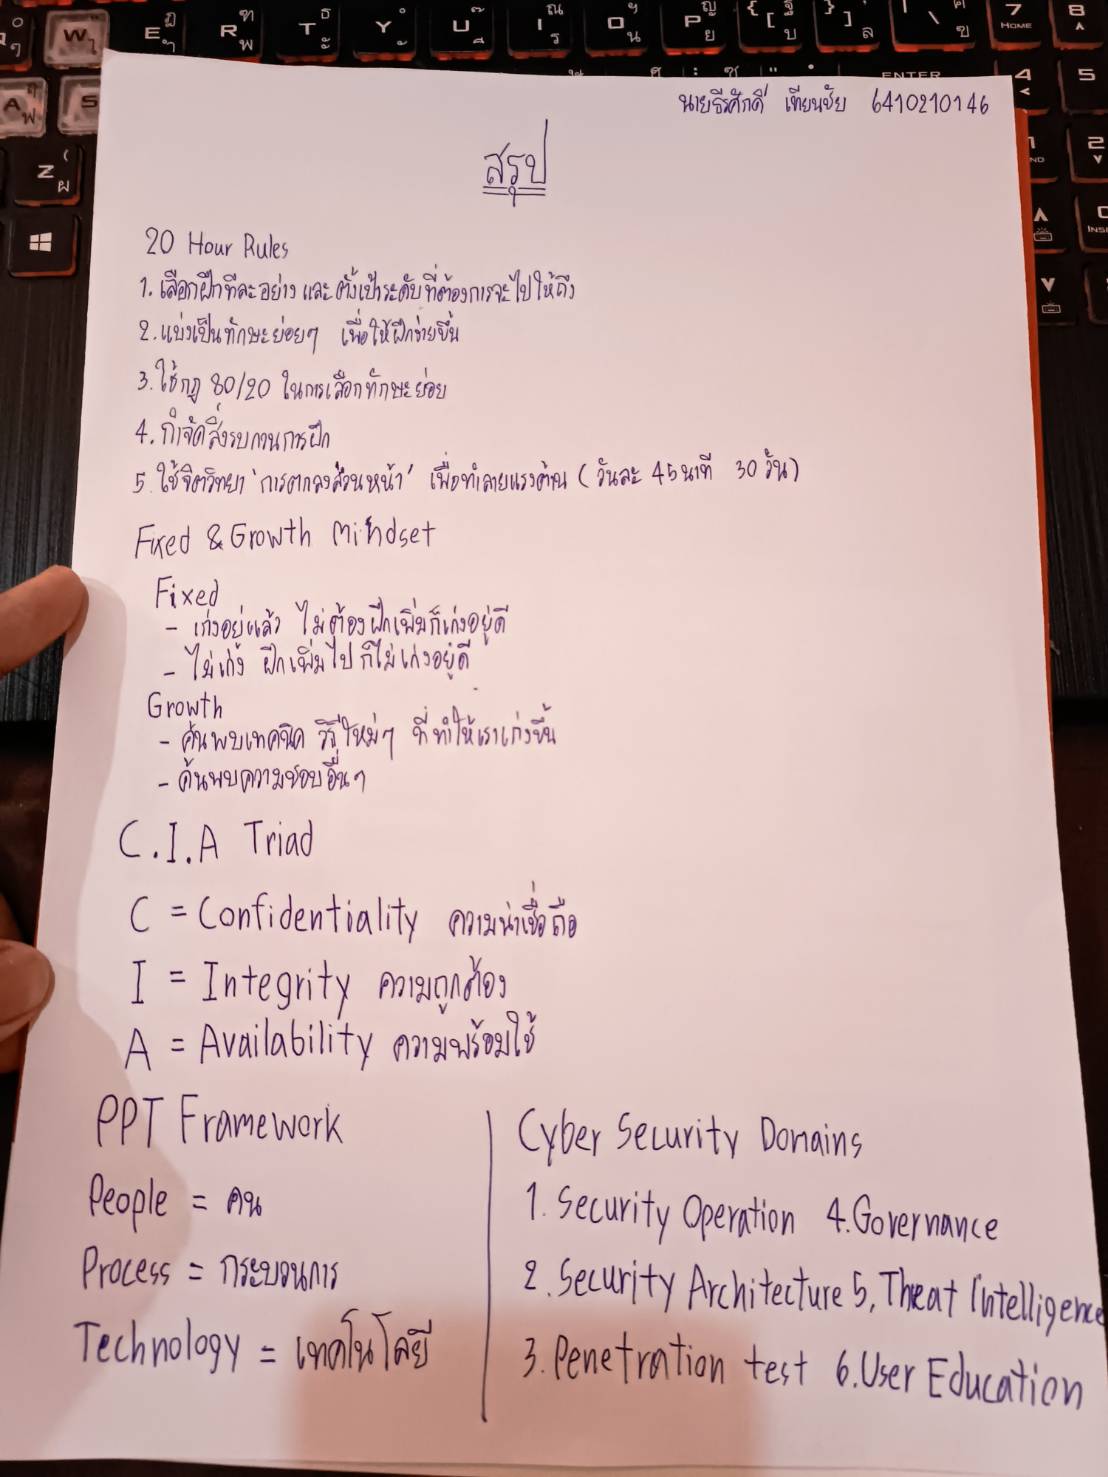 นายธีรศักดิ์ เทียนชัย 6410210146
สรุป
20 Hour Rules
1. เลือกฝึกทีละอย่าง และ ตั้งเป้าระดับที่ต้องการจะไปให้ถึง
2. แบ่งเป็นทักษะย่อยๆ เพื่อให้ฝึกง่ายขึ้น
3. ใช้กฎ 80/20 ในการเลือกทักษะย่อย
4. กำจัดสิ่งรบกวนการฝึก
5. ใช้จิตวิทยา 'การตกลงล่วงหน้า' เพื่อทำลายแรงต้าน (วันละ 45 นาที 30 วัน)
Fixed & Growth Mindset
Fixed
- เก่งอยู่แล้ว ไม่ต้องฝึกเพิ่มก็เก่งอยู่ดี
- ไม่เก่ง ฝึกเพิ่มไปก็ไม่เก่งอยู่ดี
Growth
- ค้นพบเทคนิค วิธีใหม่ๆ ที่ทำให้เราเก่งขึ้น
- ค้นพบความชอบอื่นๆ
C.I.A Triad
C = Confidentiality ความน่าเชื่อถือ
I = Integrity ความถูกต้อง
A = Availability ความพร้อมใช้
PPT Framework
People = คน
Process = กระบวนการ
Technology = เทคโนโลยี
Cyber Security Domains
1. Security Operation 4. Governance
2. Security Architecture 5. Threat Intelligence
3. Penetration test 6. User Education